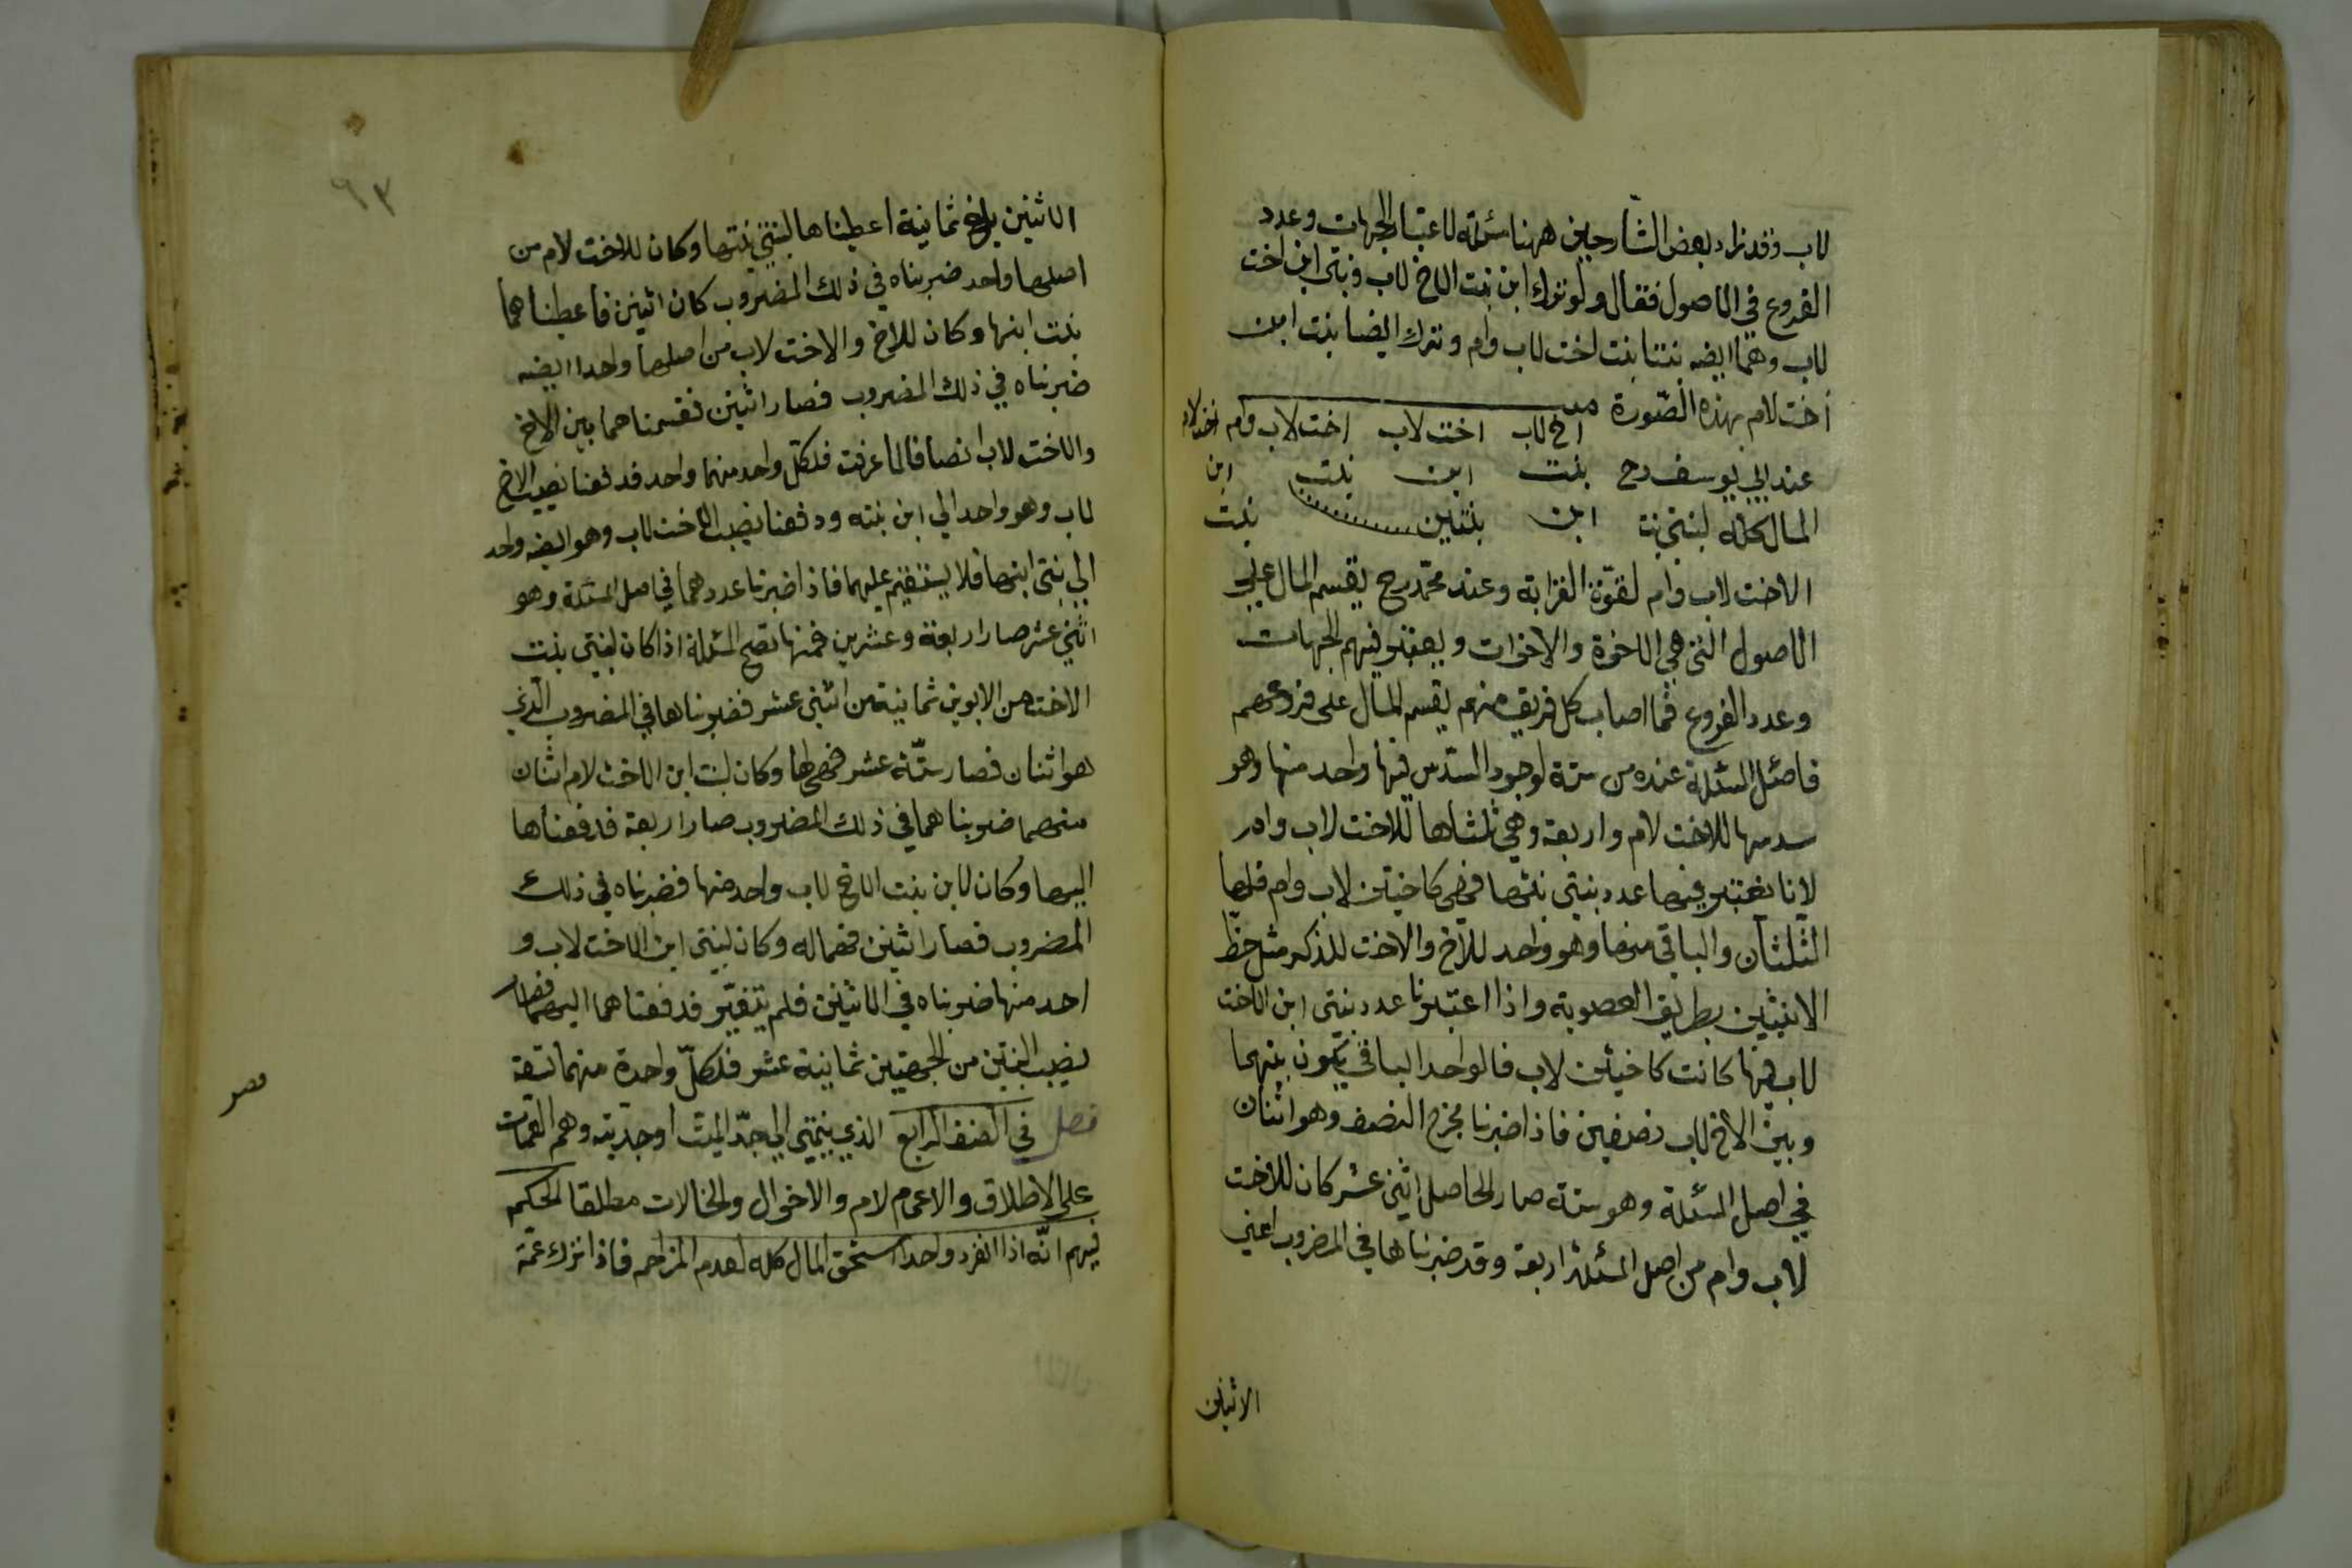 لاب وقد زاد بعض الشارحين ههنا مسئلة لاعتبار الجهات وعدد
الفروع في الاصول فقال ولو ترك ابن بنت الاخ لاب وبنتي ابن اخت
لاب وهما ايضه بنتا بنت اخت لاب وام وترك ايضا بنت ابن
اخت لام بهذه الصورة
اخ لاب اخت لاب اخت لاب وام اخت لام
عند ابي يوسف رح بنت ابن بنت ابن
المال كله لبنتي بنت ابن بنتين بنت
الاخت لاب وام لقوّة القرابة وعند محمّد رح يقسم المال على
الاصول التي هي الاخوة والاخوات ويعتبر فيهم الجهات
وعدد الفروع فما اصاب كل فريق منهم يقسم المال على فروعهم
فاصل المسئلة عنده من ستة لوجود السّدس فيها واحد منها وهو
سدسها للاخت لام واربعة وهي ثلثاها للاخت لاب وام
لانا نعتبر فيها عدد بنتي بنتها فهي كاختين لاب وام فلها
الثّلثان والباقي منها وهو واحد للاخ والاخت للذكر مثل حظّ
الانثيين بطريق العصوبة واذا اعتبرنا عدد بنتي ابن الاخت
لاب فيها كانت كاختين لاب فالواحد الباقي يكون بينهما
وبين الاخ لاب نصفين فاذا ضبرنا مخرج النصف وهو اثنان
في اصل المسئلة وهو ستة صار الحاصل اثني عشر كان للاخت
لاب وام من اصل المسئلة اربعة وقد ضبرناها في المضروب اعني
الاثنين
٩٣
الاثنين بلغ ثمانية اعطيناها لبنتي بنتها وكان للاخت لام من
اصلها واحد ضبربناه في ذلك المضروب كان اثنين فاعطيناهما
بنت ابنها وكان للاخ والاخت لاب من اصلها واحدا ايضه
ضبرناه في ذلك المضروب فصار اثنين فقسمناهما بين الاخ
والاخت لاب انصافا لما عرفت فلكلّ واحد منهما واحد فدفعنا نصيب الاخ
لاب وهو واحد الي ابن بنته ودفعنا نصيب الاخت لاب وهو ايضه واحد
الي بنتي ابنها فلا يستقيم عليهما فاذا ضبرنا عددهما في اصل المسئلة وهو
اثني عشر صار اربعة وعشرين فمنها تصح المسئلة اذا كان لبنتي بنت
الاخت من الابوين ثمانية من اثني عشر فضربناها في المضروب الّذي
هو اثنان فصار ستّة عشر فهي لها وكان لبنت ابن الاخت لام اثنان
منها ضربناهما في ذلك المضروب صار اربعة فدفعناها
اليها وكان لابن بنت الاخ لاب واحد منها فضبرناه في ذلك
المضروب فصار اثنين فهما له وكان لبنتي ابن الاخت لاب و
احد منها ضربناه في الاثنين فلم يتغيّر فدفعناهما اليهما فصار
نصيب البنتين من الجهتين ثمانية عشر فلكلّ واحدة منهما تسعة
فصل في الصنف الرابع الذي ينتمي الي جدّ الميت او جدّيته وهم العمّات
على الاطلاق والاعمام لام والاخوال والخالات مطلقا الحكم
فيهم انّه اذا انفرد واحدا استحق المال كله لعدم المزاحم فاذا ترك عمّة